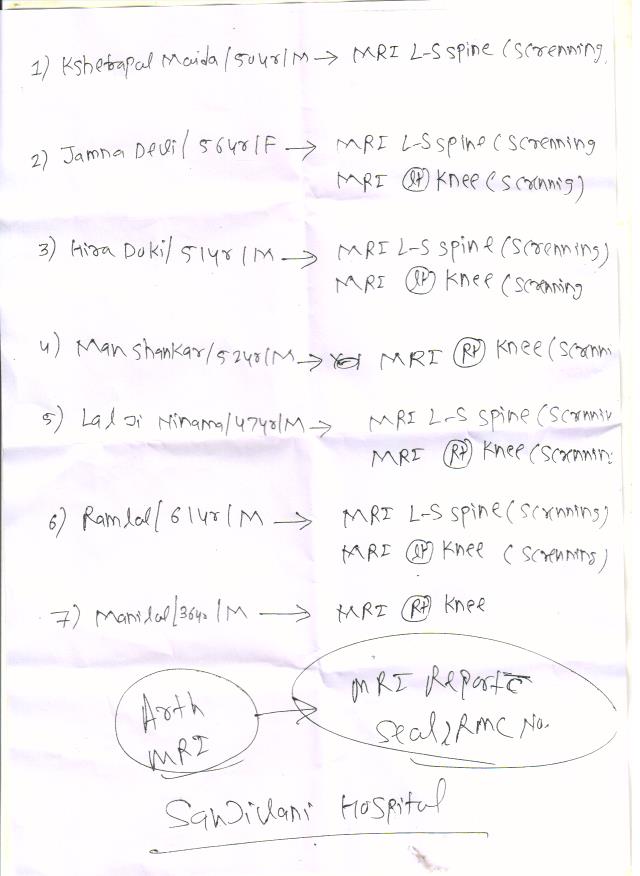 1) Kshetrapal Maida/50yr/M → MRI L-S spine (Screnning
2) Jamna Devi/56yr/F → MRI L-S spine (Screnning
MRI Lt Knee (Scrnnig)
3) Hira Doki/51yr/M → MRI L-S spine (Screnning)
MRI Lt Knee (Scrnning
4) Man Shankar/52yr/M → MRI Rt Knee (Scrnni
5) Lal Ji Ninama/47yr/M → MRI L-S spine (Scrnnin
MRI Rt Knee (Scrnnin
6) Ramlal/61yr/M → MRI L-S spine (Scrnning)
MRI Lt Knee (Screnning)
7) Manilal/36yr/M → MRI Rt Knee
Arth
MRI → MRI Report c̄
Seal, RMC No.
Hospital